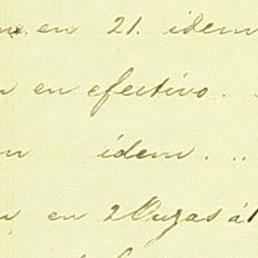 en 21. idem
en efectivo . .
idem . . .
en 2 Onzas á 1